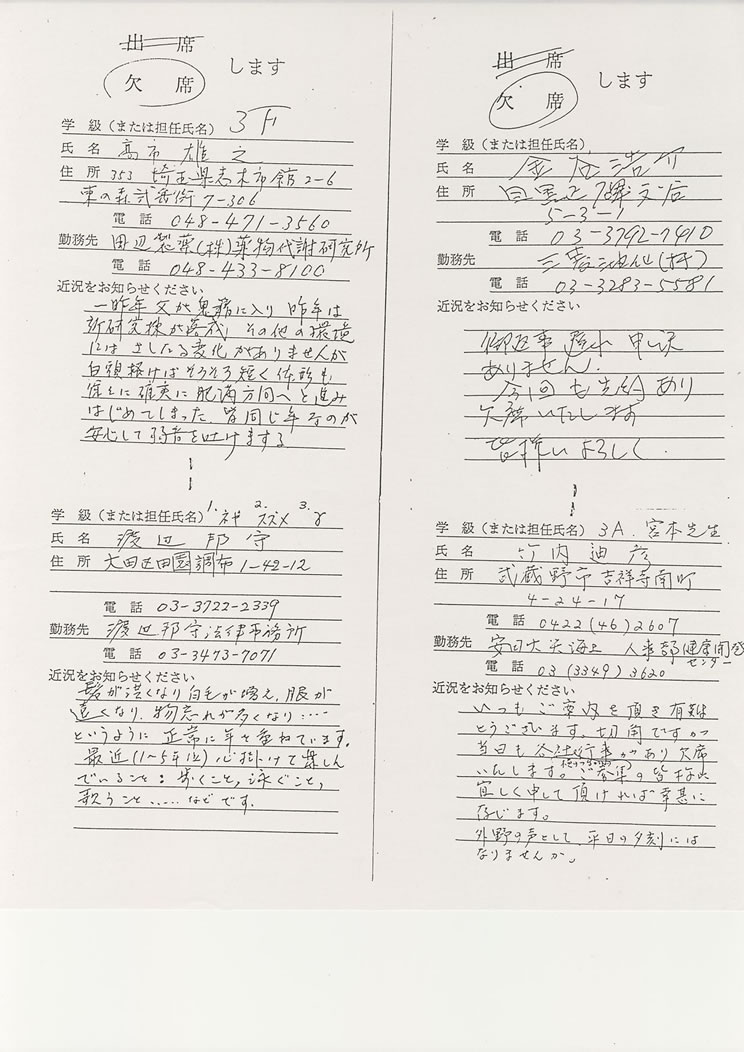 出席
欠席
します
学級(または担任氏名) 3下
氏名 高市雄之
住所 353 埼玉県志木市館2-6
東の森弐番街7-306
電話 048-471-3560
勤務先 田辺製薬(株)薬物代謝研究所
電話 048-433-8100
近況をお知らせください
一昨年父が鬼籍に入り 昨年は
新研究棟が完成、その他の環境
にはさしたる変化がありませんが
白頭掻けばそろそろ短く体形も
徐々に確実に肥満方向へと進み
はじめてしまった。皆同じ年なのが
安心して弱音を吐けまする
学級(または担任氏名) 1.ネギ 2.スズメ 3.
氏名 渡辺邦守
住所 大田区田園調布1-42-12
電話 03-3722-2339
勤務先 渡辺邦守法律事務所
電話 03-3473-7071
近況をお知らせください
髪が淡くなり白毛が増え、眼が
遠くなり、物忘れが多くなり……
というように正常に年を重ねています。
最近(1~5年位)心掛けて楽しん
でいること:歩くこと,泳ぐこと,
歌うこと……などです.
出席
欠席
します
学級(または担任氏名)
氏名 金 浩
住所 目黒区
5-3-1
電話 03-3792-7410
勤務先 三菱油化(株)
電話 03-3283-5581
近況をお知らせください
御返事遅れ申訳
ありません.
今回も先約あり
欠席いたします
皆様によろしく.
学級(または担任氏名) 3A.宮本先生
氏名 竹内迪彦
住所 武蔵野市吉祥寺南町
4-24-17
電話 0422(46)2607
勤務先 安田火災海上 人事部健康開発
センター
電話 03(3349)3620
近況をお知らせください
いつもご案内を頂き有難
とうございます。切角ですが
当日も会社行事があり欠席
いたします。ご参集の皆様に
宜しく申して頂ければ幸甚に
存じます。
外野の声として、平日の夕刻には
なりませんか。